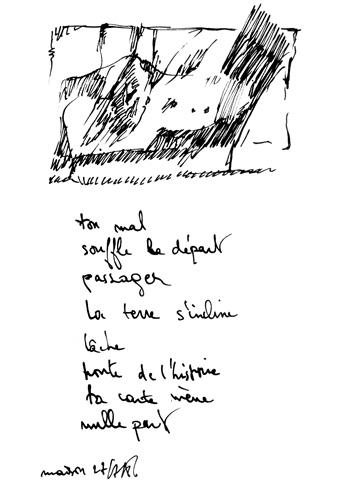 ton mal
souffle le départ
passager
la terre s'incline
lâche
honte de l'histoire
ta carte mène
nulle part